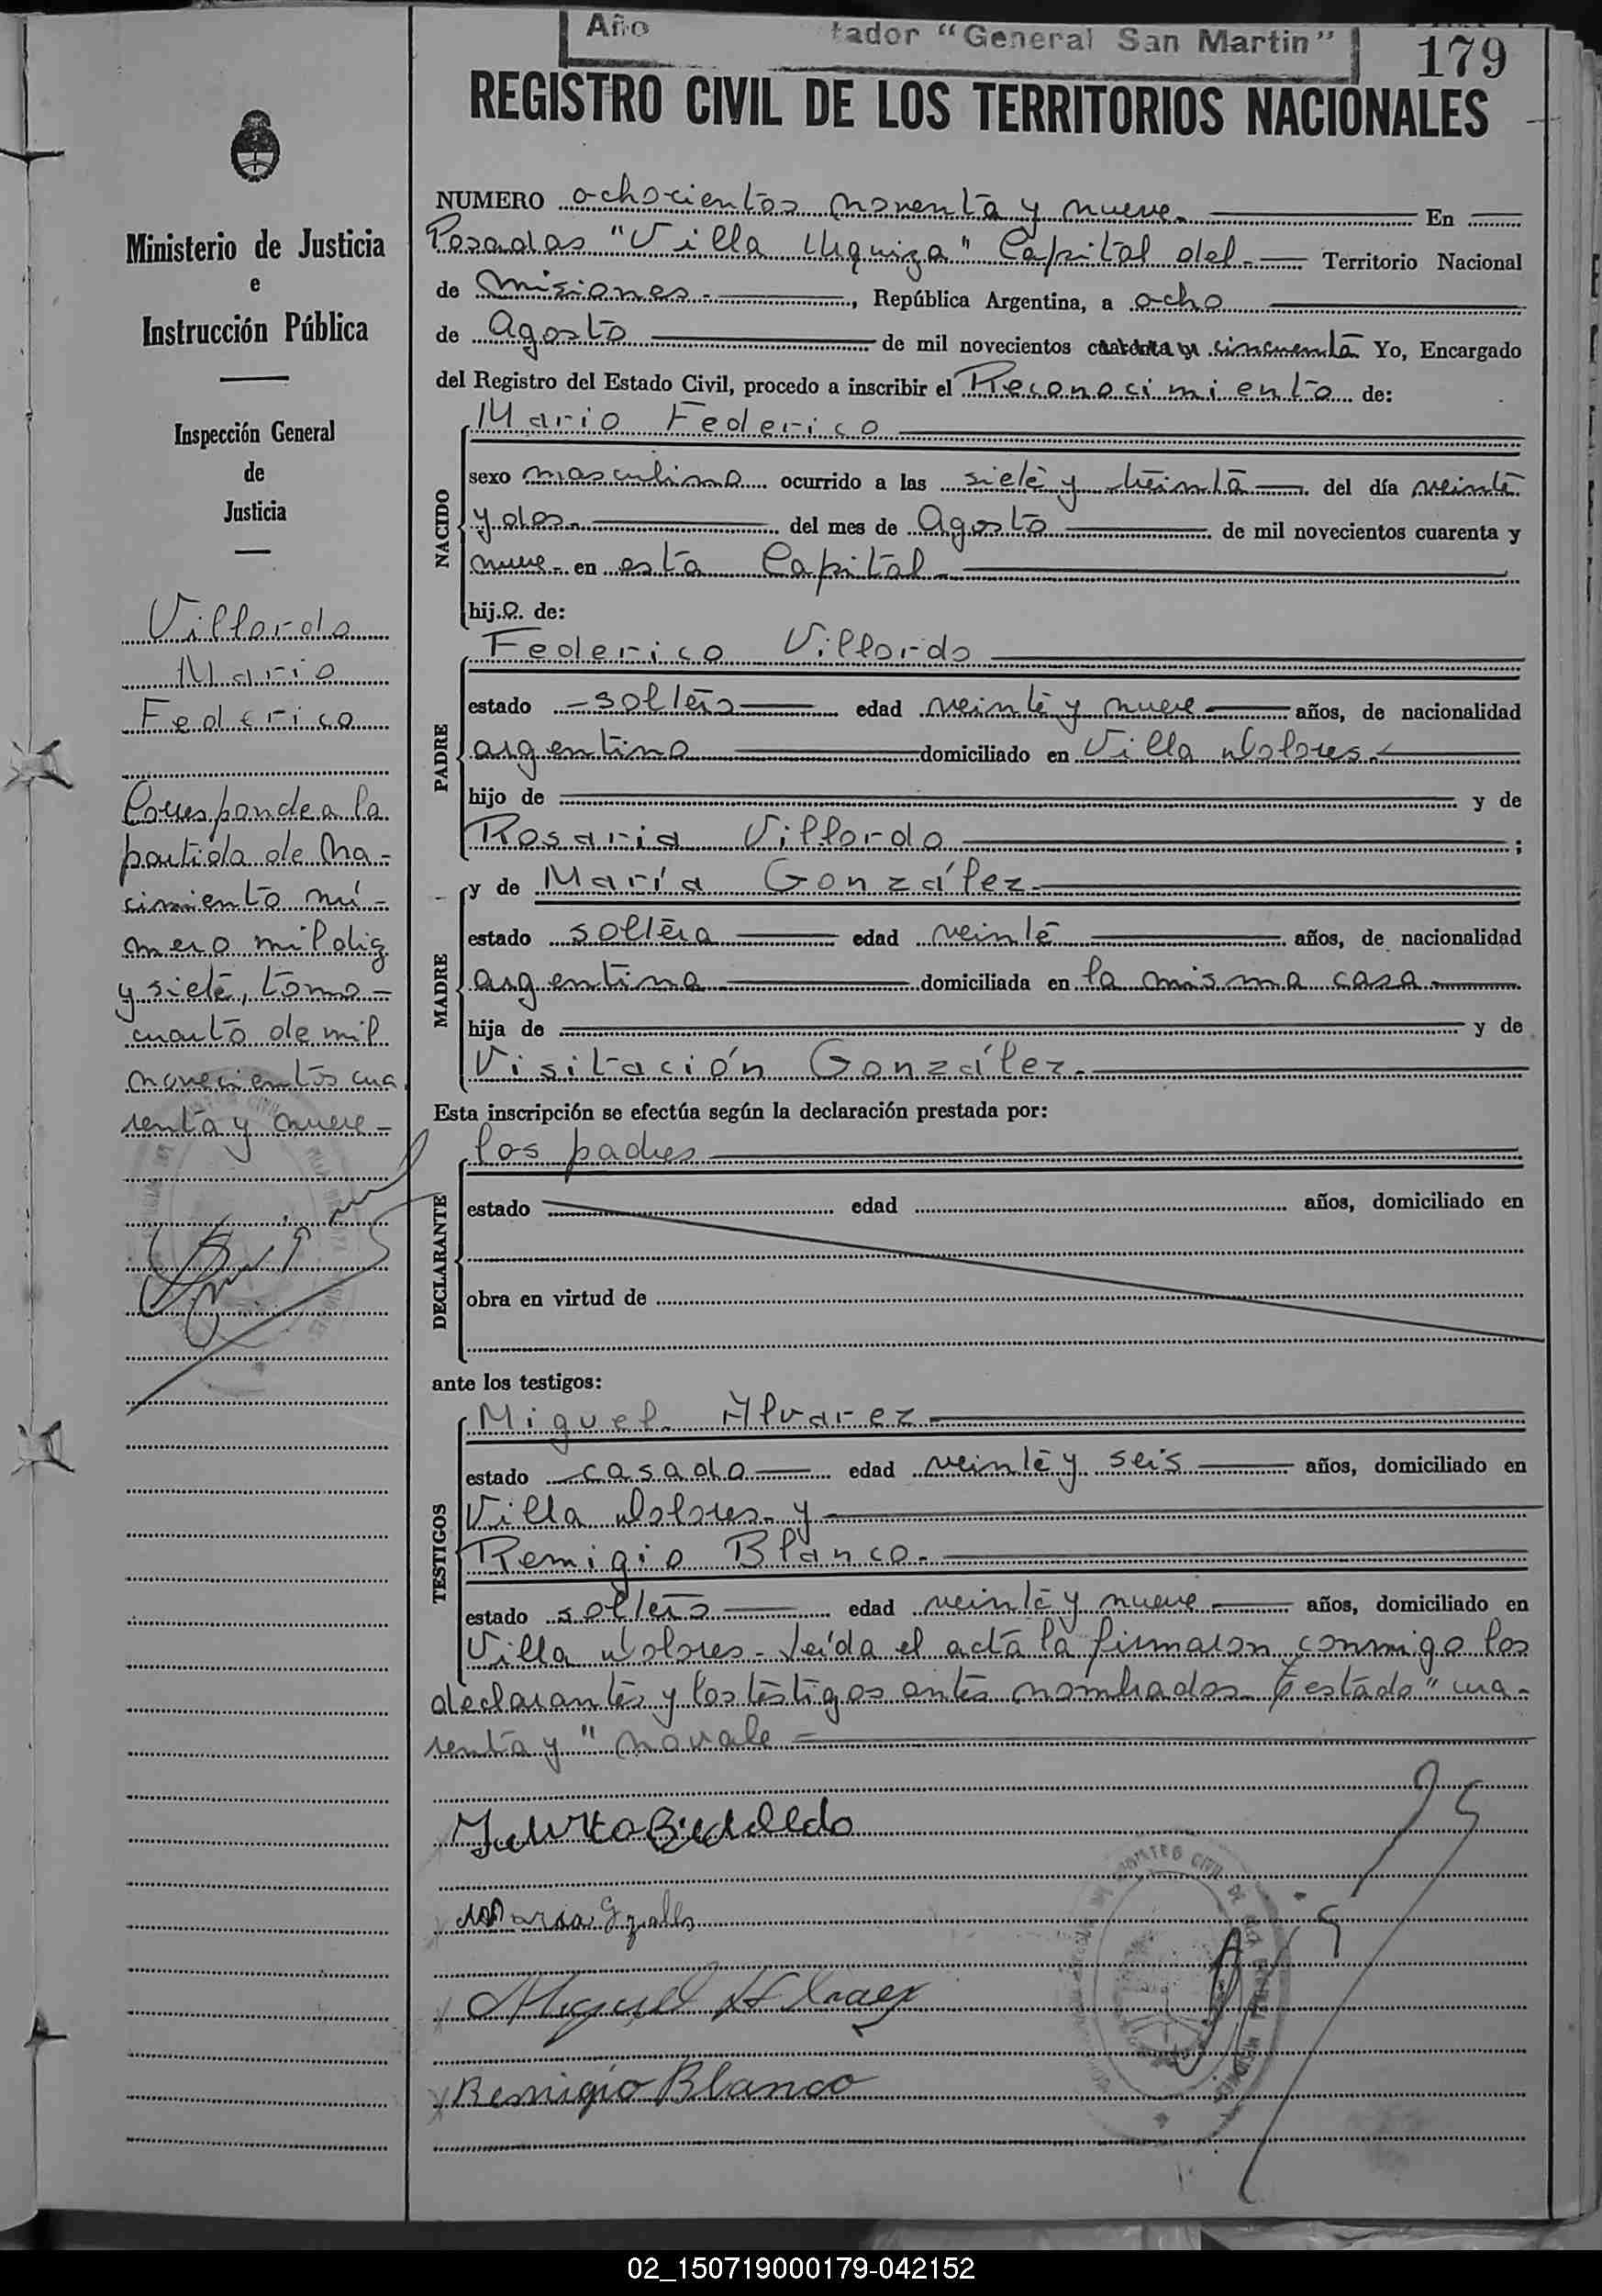 Año tador "General San Martin"
179
REGISTRO CIVIL DE LOS TERRITORIOS NACIONALES
Ministerio de Justicia
e
Instrucción Pública
Inspección General
de
Justicia
Villordo
Mario
Federico
Corresponde a la
partida de Na-
cimiento nú-
mero mil diez
y siete, tomo-
cuarto de mil
novecientos cua
renta y nueve-
NUMERO ochocientos noventa y nueve. En
Posadas "Villa Urquiza" Capital del Territorio Nacional
de Misiones., República Argentina, a ocho
de Agosto de mil novecientos cuarenta y cincuenta Yo, Encargado
del Registro del Estado Civil, procedo a inscribir el Reconocimiento de:
NACIDO
Mario Federico
sexo masculino ocurrido a las siete y treinta del día veinte
y dos. del mes de Agosto de mil novecientos cuarenta y
nueve- en esta Capital.
hijo. de:
PADRE
Federico Villordo
estado soltero edad veinte y nueve años, de nacionalidad
argentino domiciliado en Villa Dolores.
hijo de y de
Rosaria Villordo ;
MADRE
y de María González.
estado soltera edad veinte años, de nacionalidad
argentina domiciliada en la misma casa
hija de y de
Visitación González.
Esta inscripción se efectúa según la declaración prestada por:
DECLARANTE
los padres
estado edad años, domiciliado en
obra en virtud de
ante los testigos:
TESTIGOS
Miguel Alvarez
estado casado edad veinte y seis años, domiciliado en
Villa Dolores- y
Remigio Blanco.
estado soltero edad veinte y nueve años, domiciliado en
Villa Dolores- Leída el acta la firmaron conmigo los
declarantes y los testigos antes nombrados- Testado "cua-
renta y" no vale
Maria Gzalez
Miguel Alvarez
Remigio Blanco
02_150719000179-042152